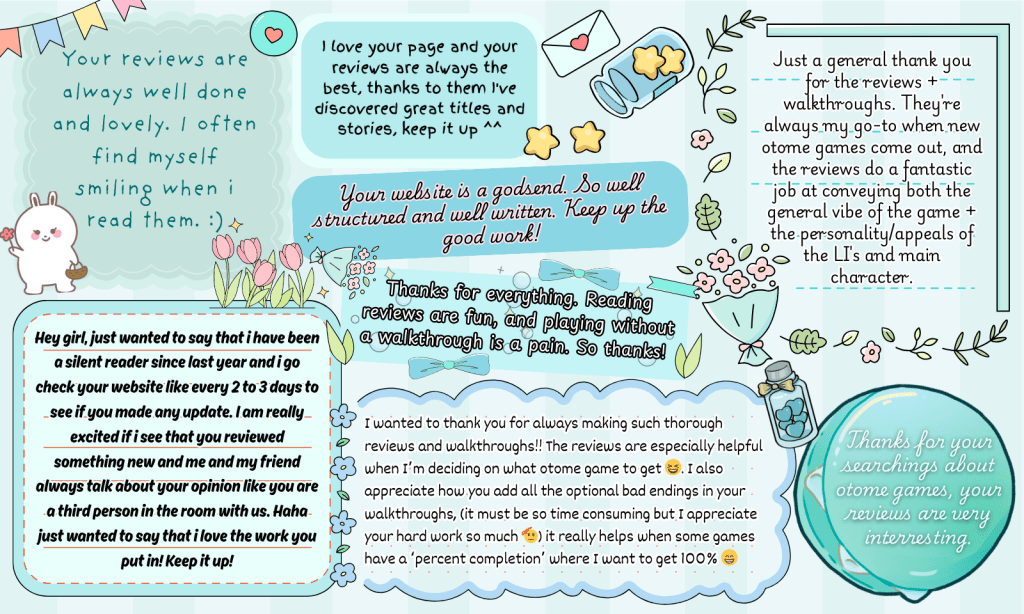 Your reviews are
always well done
and lovely. I often
find myself
smiling when i
read them. :)
I love your page and your
reviews are always the
best, thanks to them I've
discovered great titles and
stories, keep it up ^^
Just a general thank you
for the reviews +
walkthroughs. They're
always my go-to when new
otome games come out, and
the reviews do a fantastic
job at conveying both the
general vibe of the game +
the personality/appeals of
the LI's and main
character.
Your website is a godsend. So well
structured and well written. Keep up the
good work!
Thanks for everything. Reading
reviews are fun, and playing without
a walkthrough is a pain. So thanks!
Hey girl, just wanted to say that i have been
a silent reader since last year and i go
check your website like every 2 to 3 days to
see if you made any update. I am really
excited if i see that you reviewed
something new and me and my friend
always talk about your opinion like you are
a third person in the room with us. Haha
just wanted to say that i love the work you
put in! Keep it up!
I wanted to thank you for always making such thorough
reviews and walkthroughs!! The reviews are especially helpful
when I'm deciding on what otome game to get 😅. I also
appreciate how you add all the optional bad endings in your
walkthroughs, (it must be so time consuming but I appreciate
your hard work so much 🫡) it really helps when some games
have a 'percent completion' where I want to get 100% 😄
Thanks for your
searchings about
otome games, your
reviews are very
interresting.